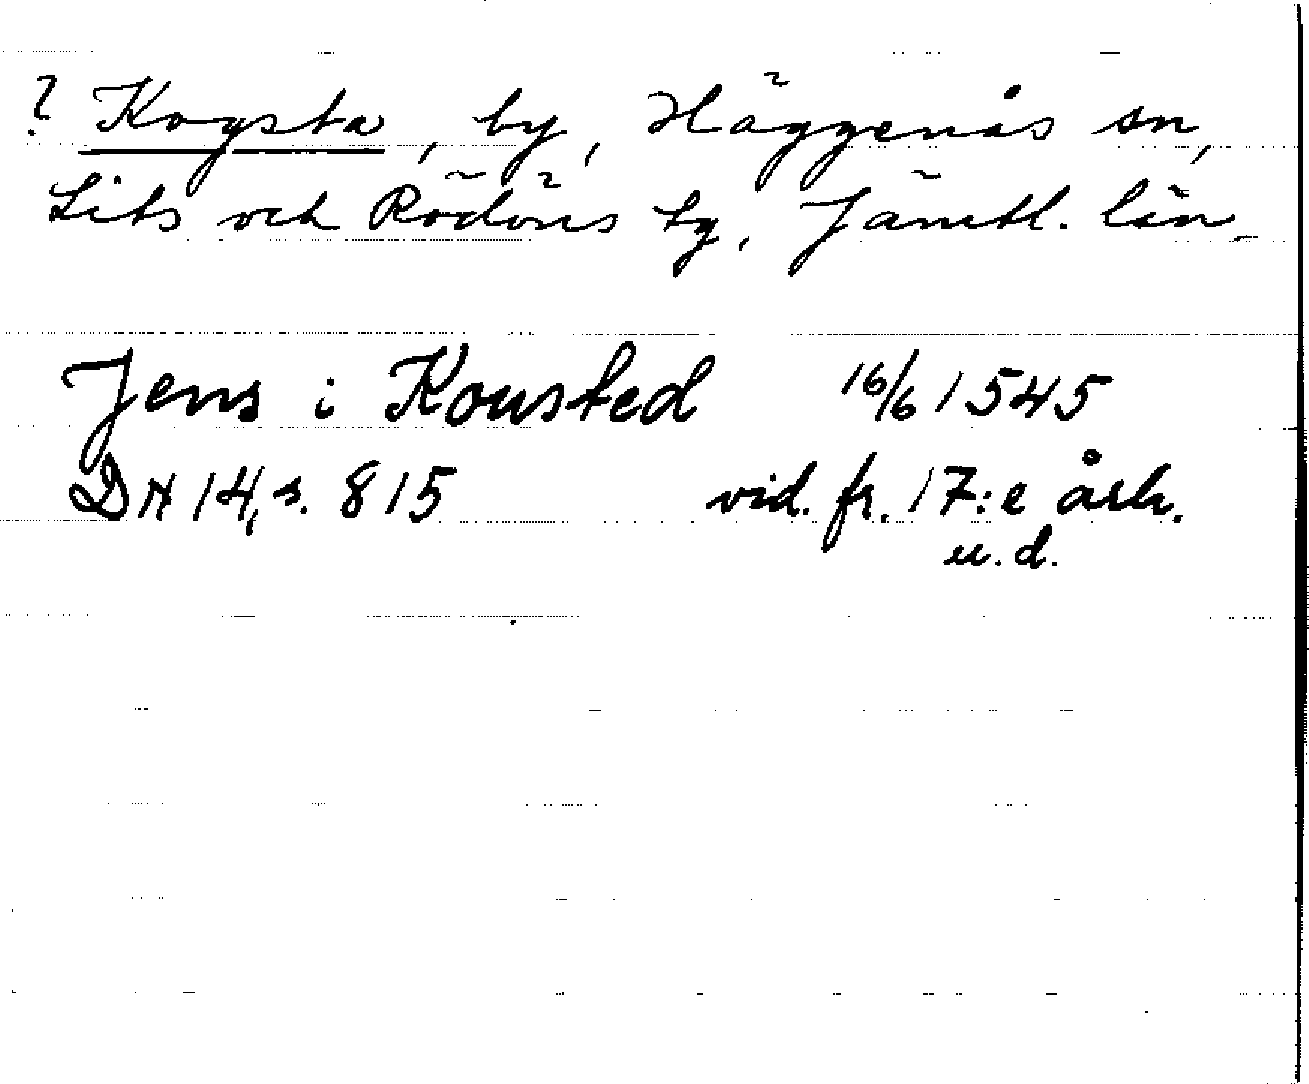 ? Kogsta, by, Häggenås sn,
Lits och Rödöns tg, Jämtl. län.
Jens i Kousted 16/6 1545
DN 14, s. 815 vid. fr. 17:e årh.
u. d.